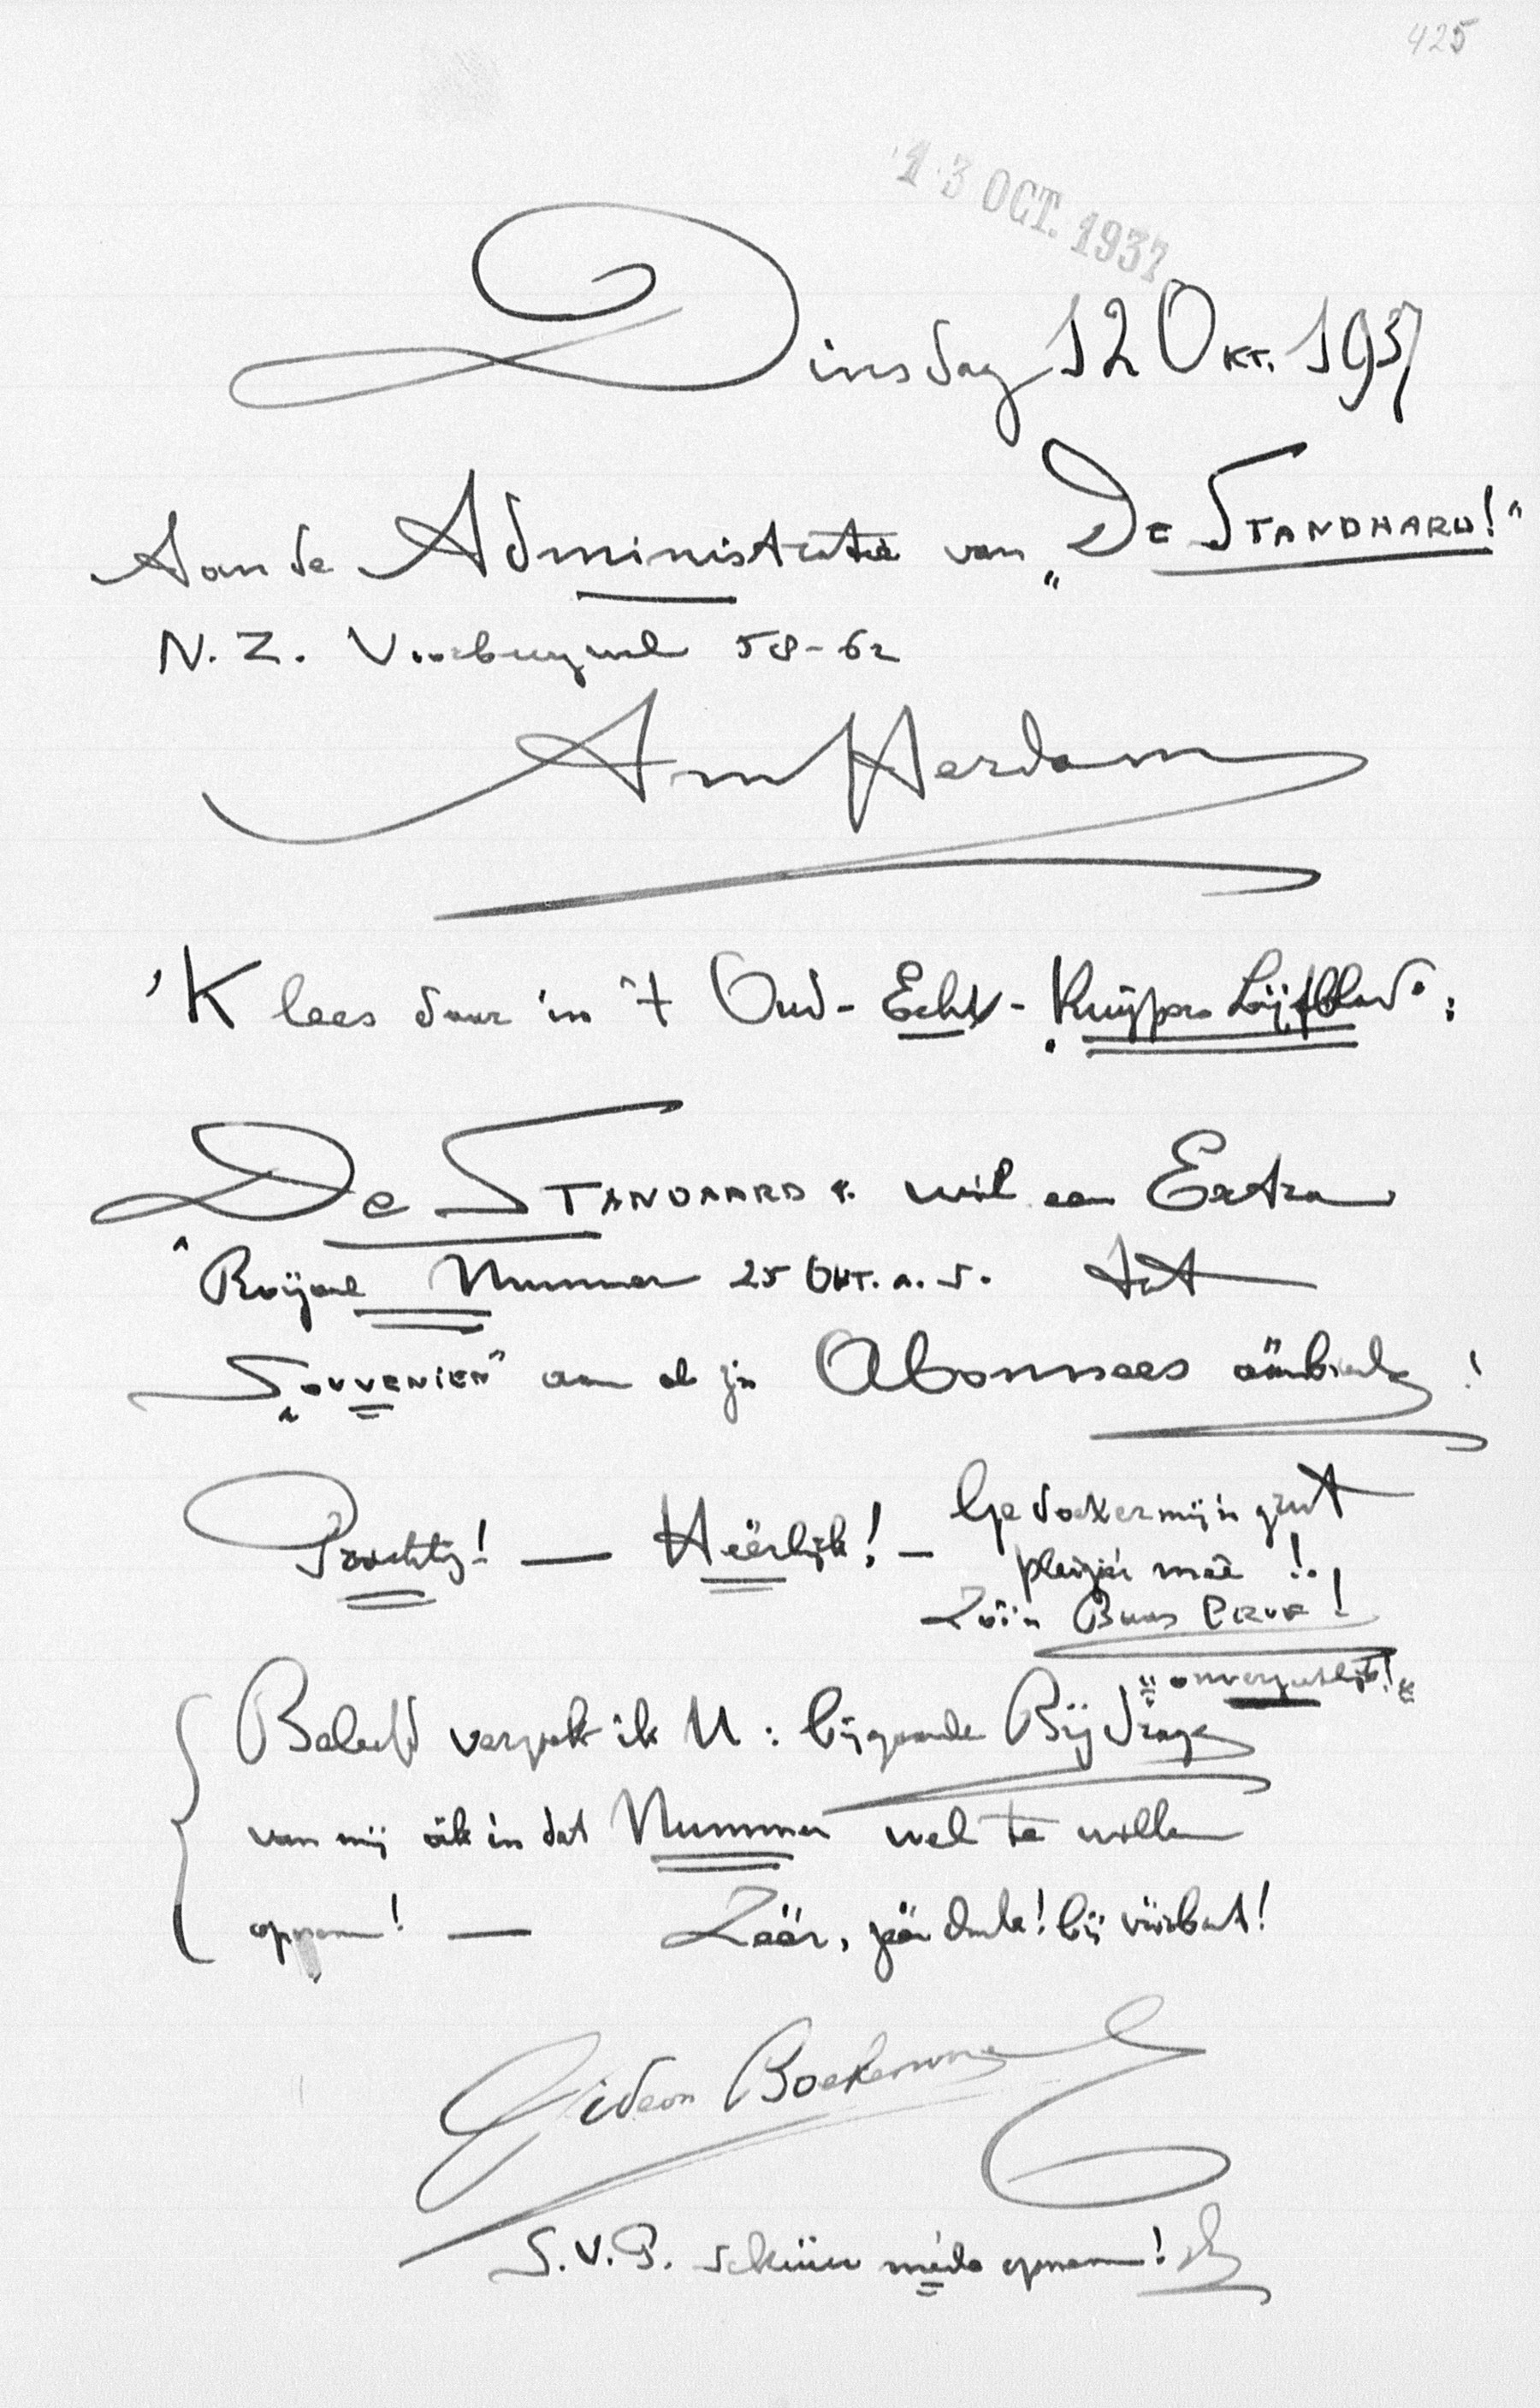 425
13 OCT. 1937
Dinsdag 12 Okt. 1937
Aan de Administratie van „De STANDHARD!"
N. Z. Voorburgwal 58-62
Amsterdam
'K lees daar in 't Oud-Echt-Kuijpers Lijfblad:
De STANDAARD wil een Extra
Roijaal Nummer 25 Okt. a. s. tot
"Souvenier" aan al zijn Abonnees äänbieden!
Prachtig! — Heërlijk! — Ge doet er mij 'n groot
pleizier meê!
Zöö'n
"onvergetelijk!"
Beleefd verzoek ik U: bijgaande Bijdrage
van mij öök in dat Nummer wel te willen
opnemen! — Zeër, zeër dank! bij vöörbaat!
Gideon Boekenoogen
S.V.P. méde opnemen!